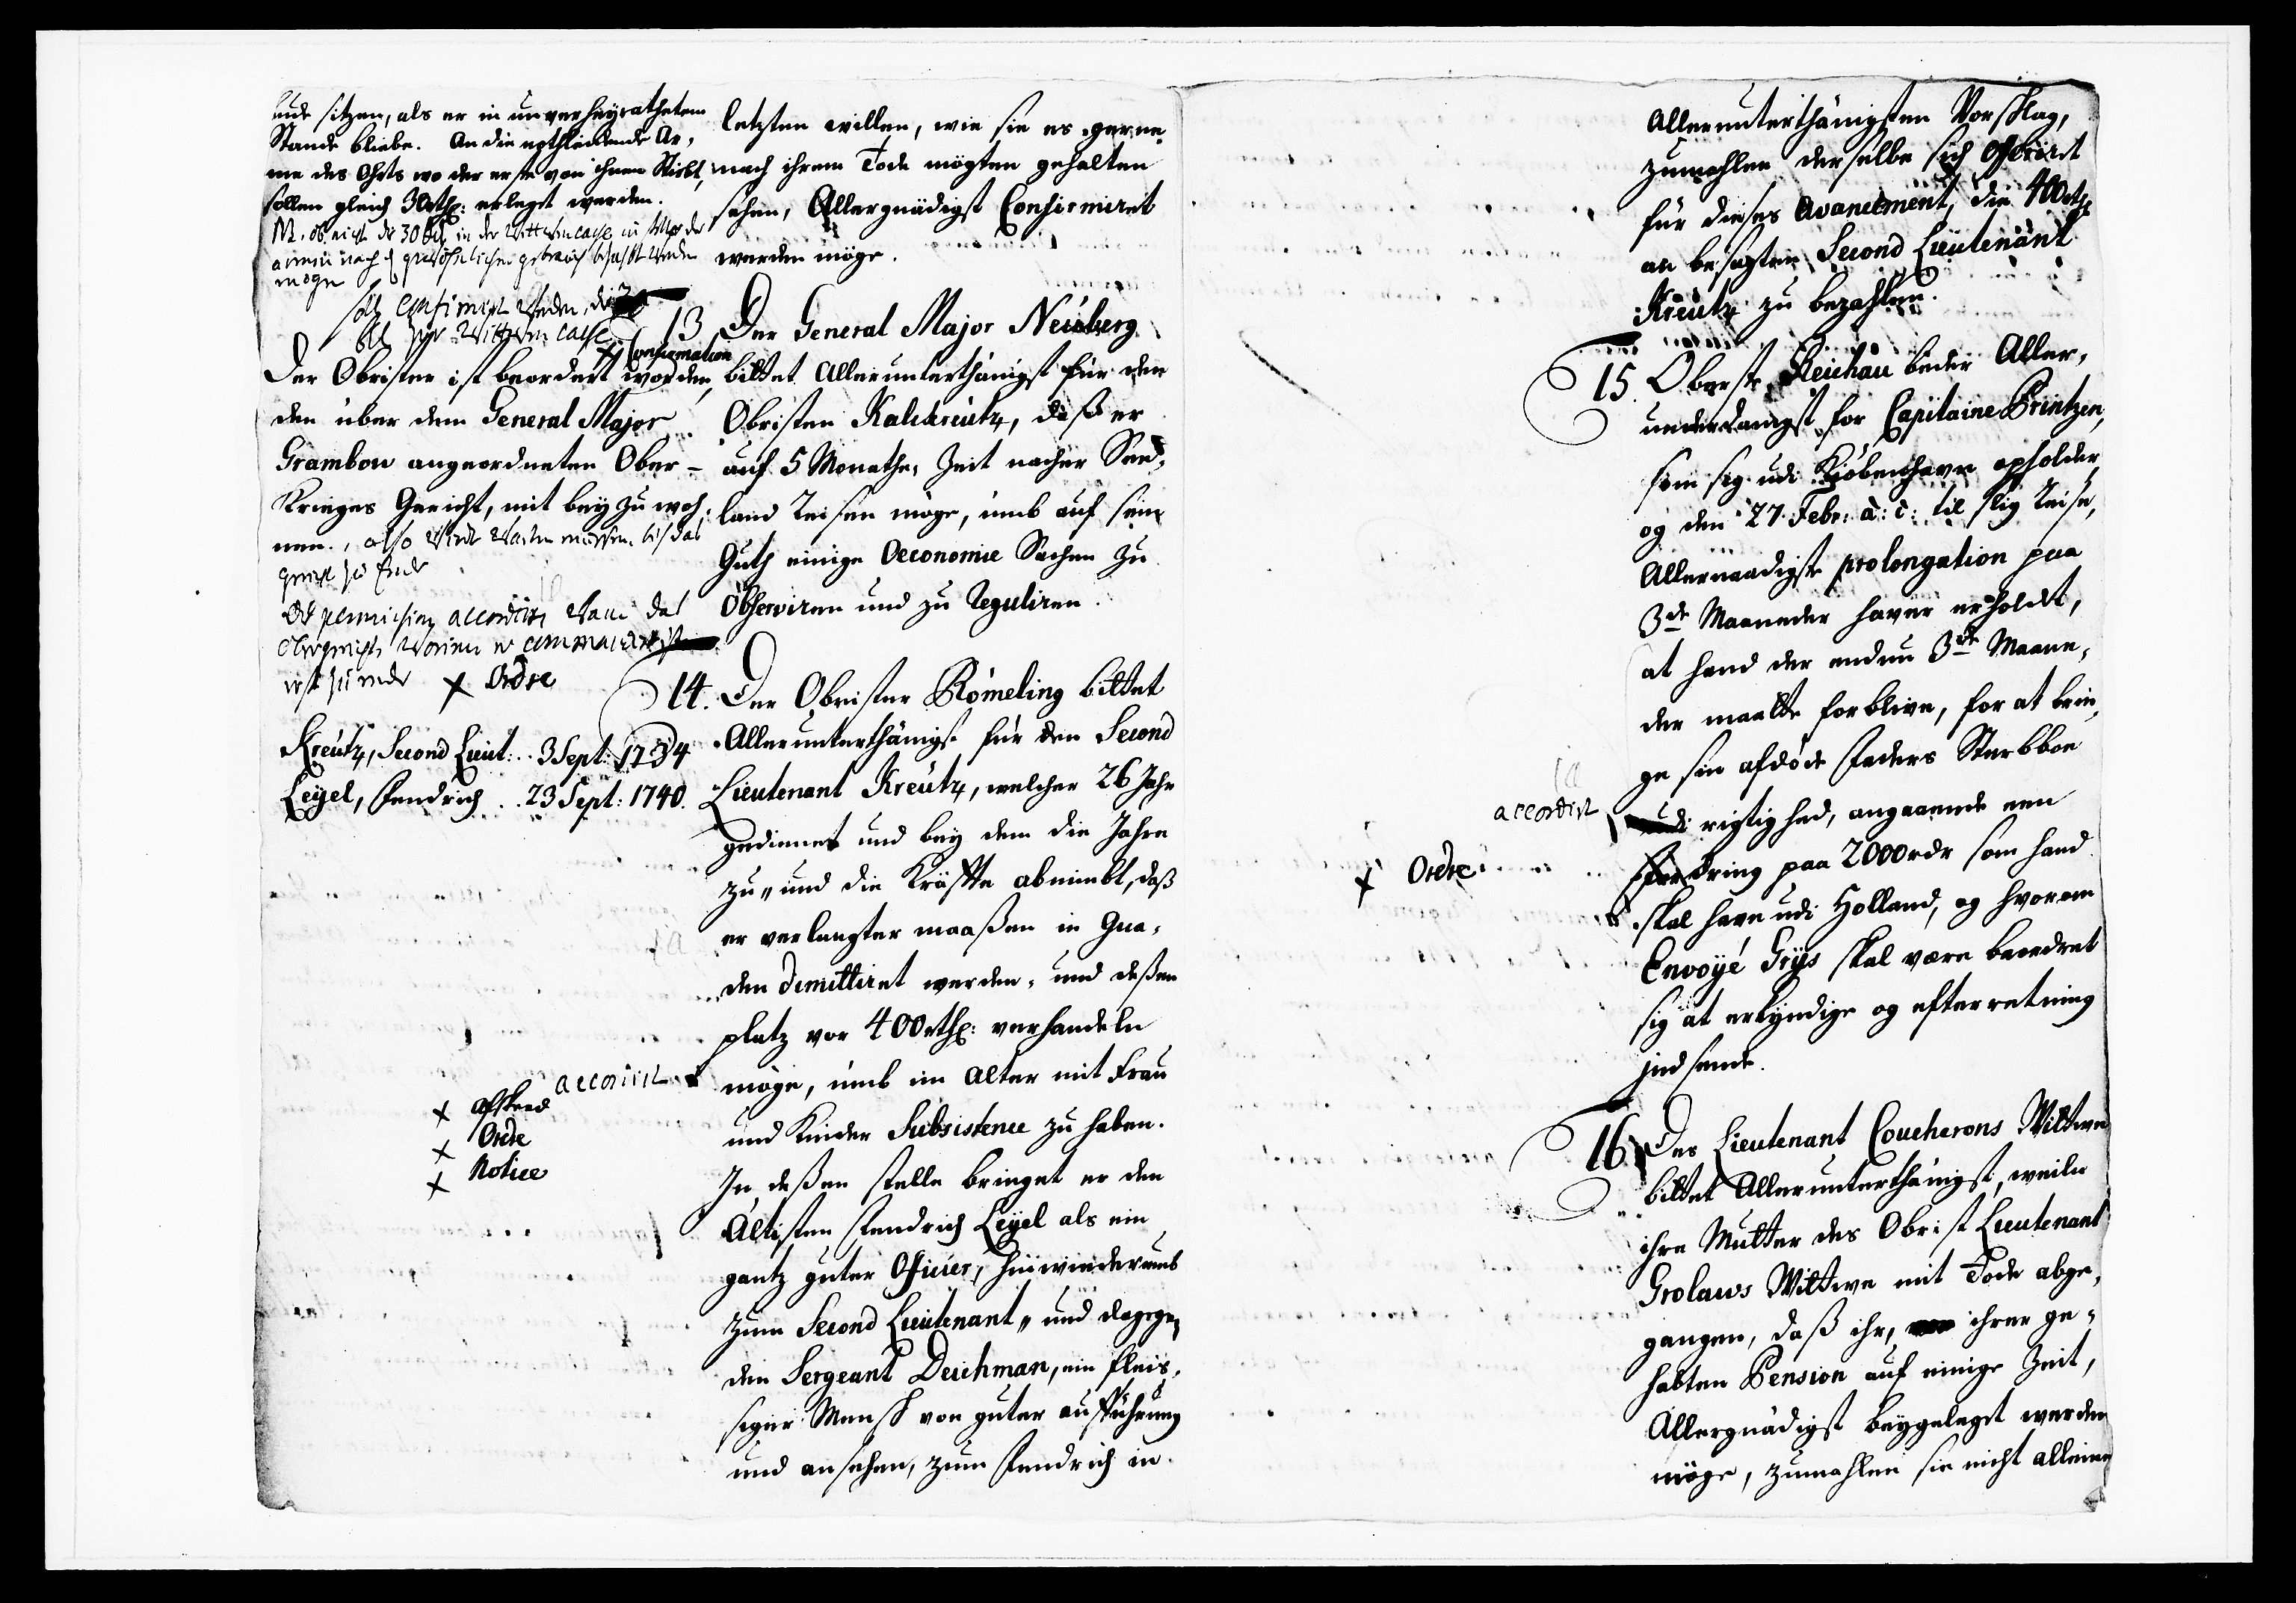 lude sitzen, als er in unverheyrathetem
Stande bliebe. An die nothleidende Ar-
me des Ohrts wo der erste von ihnen Stirbt,
sollen gleich 30rthl: erleget werden.
NB. ob nicht die 30 in der Wittwen casse
armen nach gewöhnlichen gebrauch werden
möge
soll confirmirt werden, die
zur Wittwen casse
x Confirmation
Der Obrister ist beordert worden,
den über dem General Major
Grambow angeordneten Ober-
Krieges Gericht, mit bey zu woh-
nen., also wird warten müssen bis das
gericht zu Ende
permission accordirt wann das
Obergericht worinn er commandirt ist
erst zu ende x Ordre
Kreutz, Second Lieut: .. 3 Sept: 1734
Leyel, Fendrich .. 23 Sept: 1740.
accordirt
x afskeed
x Ordre
x Notice
letzten willen, wie sie es gerne
nach ihrem Tode mögten gehalten
sehen, Allergnädigst Confirmiret
werden möge.
13 Der General Major Neuberg
bittet Allerunterthänigst für den
Obristen Kalckreutz, daß er
auf 5 Monathe, Zeit nacher See-
land reisen möge, umb auf sein
Guth einige Oeconomie Sachen zu
Observiren und zu Reguliren.
14. Der Obrister Römeling bittet
Allerunterthänigst für den Second
Lieutenant Kreutz, welcher 26 Jahr
gedienet und bey dem die Jahre
zu- und die Kräffte abnimbt, daß
er verlangter maaßen in Gna-
den dimittiret werden, und deßen
platz vor 400rthl: verhandeln
möge, umb im Alter mit Frau
und Kinder Subsistence zu haben.
In deßen stelle bringet er den
Ältisten Fendrich Leyel als ein
gantz guter Officier, hinwiederumb
zum Second Lieutenant, und dagegen
den Sergeant Deichman, ein fleis-
siger Mensch von guter aufführung
und ansehen, zum Fendrich in
Allerunterthänigsten Vorschlag,
zumahlen derselbe sich offeriret
für dieses Avancement, die 400rthl
an besagten Second Lieutenant
Kreutz zu bezahlen.
15. Oberste Reichau beder Aller-
underdanigst for Capitaine Printzen,
som sig udi Kiöbenhavn opholder
og den 27. Febr: a: c: til slig reise,
Allernaadigste prolongation paa
3de Maaneder haver erholdt,
at hand der endnu 3de Maane-
der maatte forblive, for at brin-
ge sin afdöde Faders Sterbboe
accordirt
udi rigtighed, angaaende een
x Ordre
Fordring paa 2000rdr som hand
skal have udi Holland, og hvorom
Envoyé Grÿs skal være beordret
sig at erkyndige og efterretning
indsende.
16. Des Lieutenant Coucherons Wittwe
bittet Allerunterthänigst, weile
ihre Mutter des Obrist Lieutenant
Grolaws Wittwe mit Tode abge-
gangen, daß ihr, ihrer ge-
habten Pension auf einige Zeit,
Allergnädigst beygeleget werden
möge, zumahlen sie nicht alleine